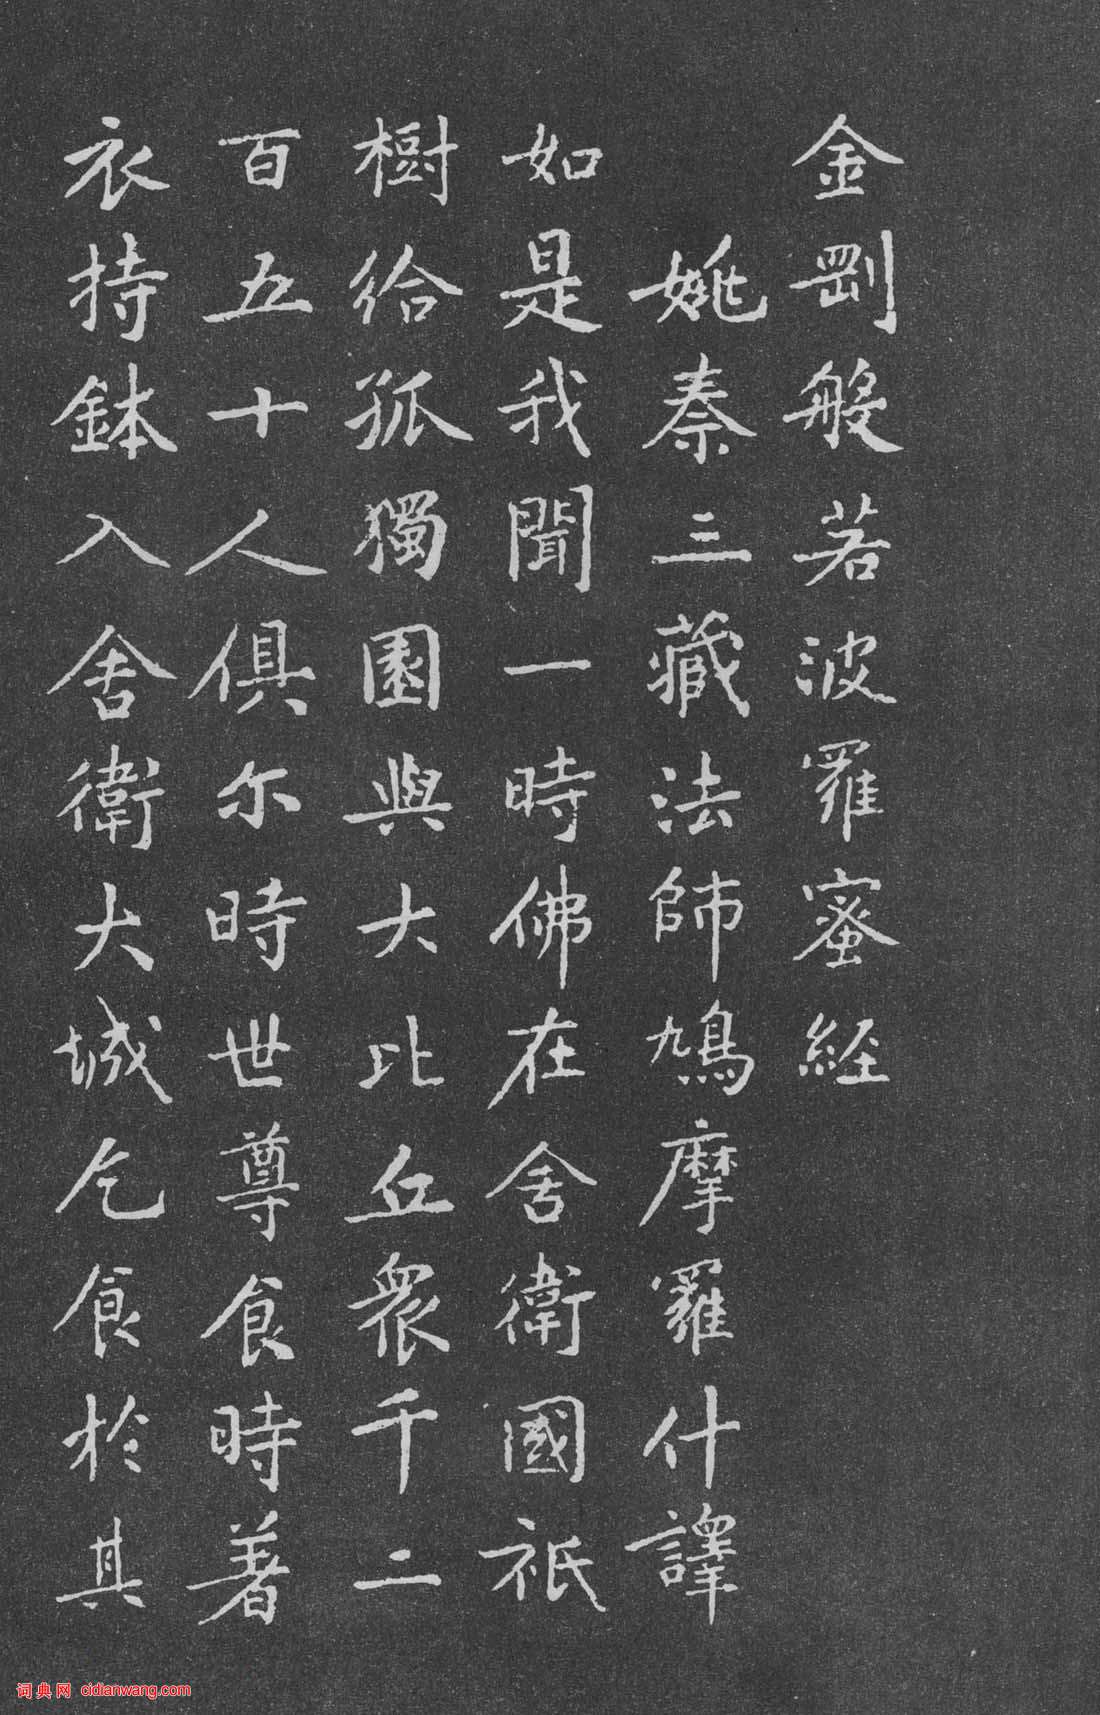 金剛般若波羅蜜經
姚秦三藏法師鳩摩羅什譯
如是我聞一時佛在舍衛國祇
樹給孤獨園與大比丘衆千二
百五十人俱尔時世尊食時著
衣持鉢入舍衛大城乞食於其
词典网 cidianwang.com